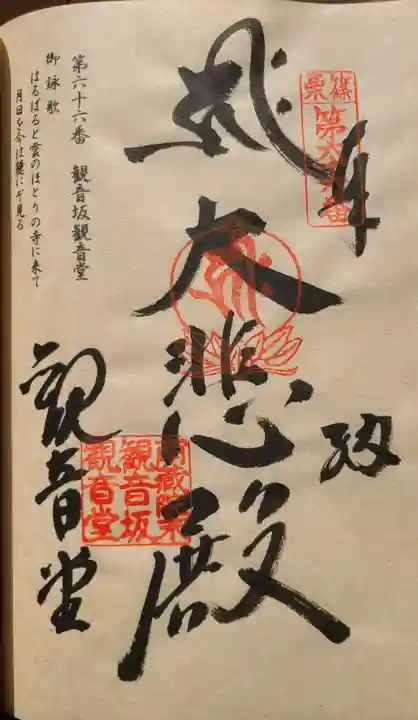 奉納
大悲殿
観音堂
篠栗
第六十六番
観音坂
観音堂
第六十六番 観音坂観音堂
御詠歌
はるばると雲のほとりの寺に来て
月日を今は麓にぞ見る